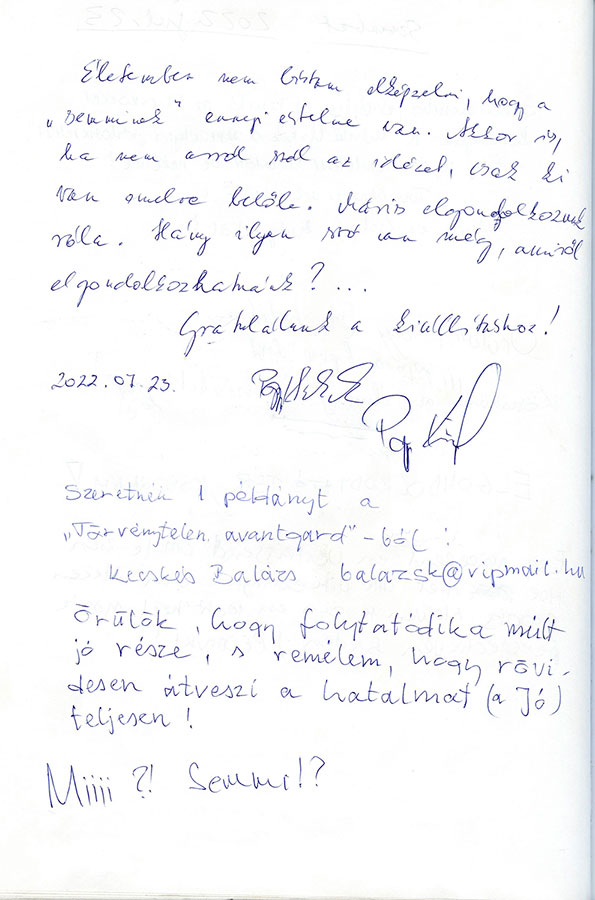 Életemben nem bírtam elképzelni, hogy a
„semminek" ennyi értelme van. Akkor is,
ha nem arról szól az idézet, csak ki
van emelve belőle. Máris elgondolkozunk
róla. Hány ilyen szó van még, amiről
elgondolkozhatnánk? ...
Gratulálunk a kiállításhoz!
2022.07.23.
Papp
Szeretnék 1 példányt a
„Törvénytelen avantgard"-ból :
Kecskés Balázs balazsk@vipmail.hu
Örülök, hogy folytatódik a múlt
jó része, s remélem, hogy rövi-
desen átveszi a hatalmat (a Jó)
teljesen!
Miiii ?! Semmi!?